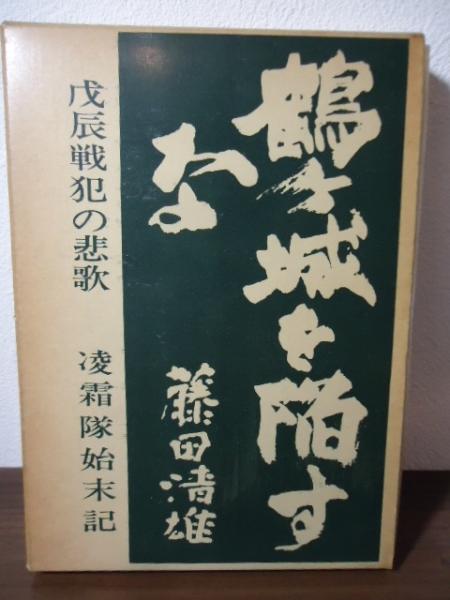 鶴ケ城を陥す
な
藤田清雄
戊辰戦犯の悲歌
凌霜隊始末記